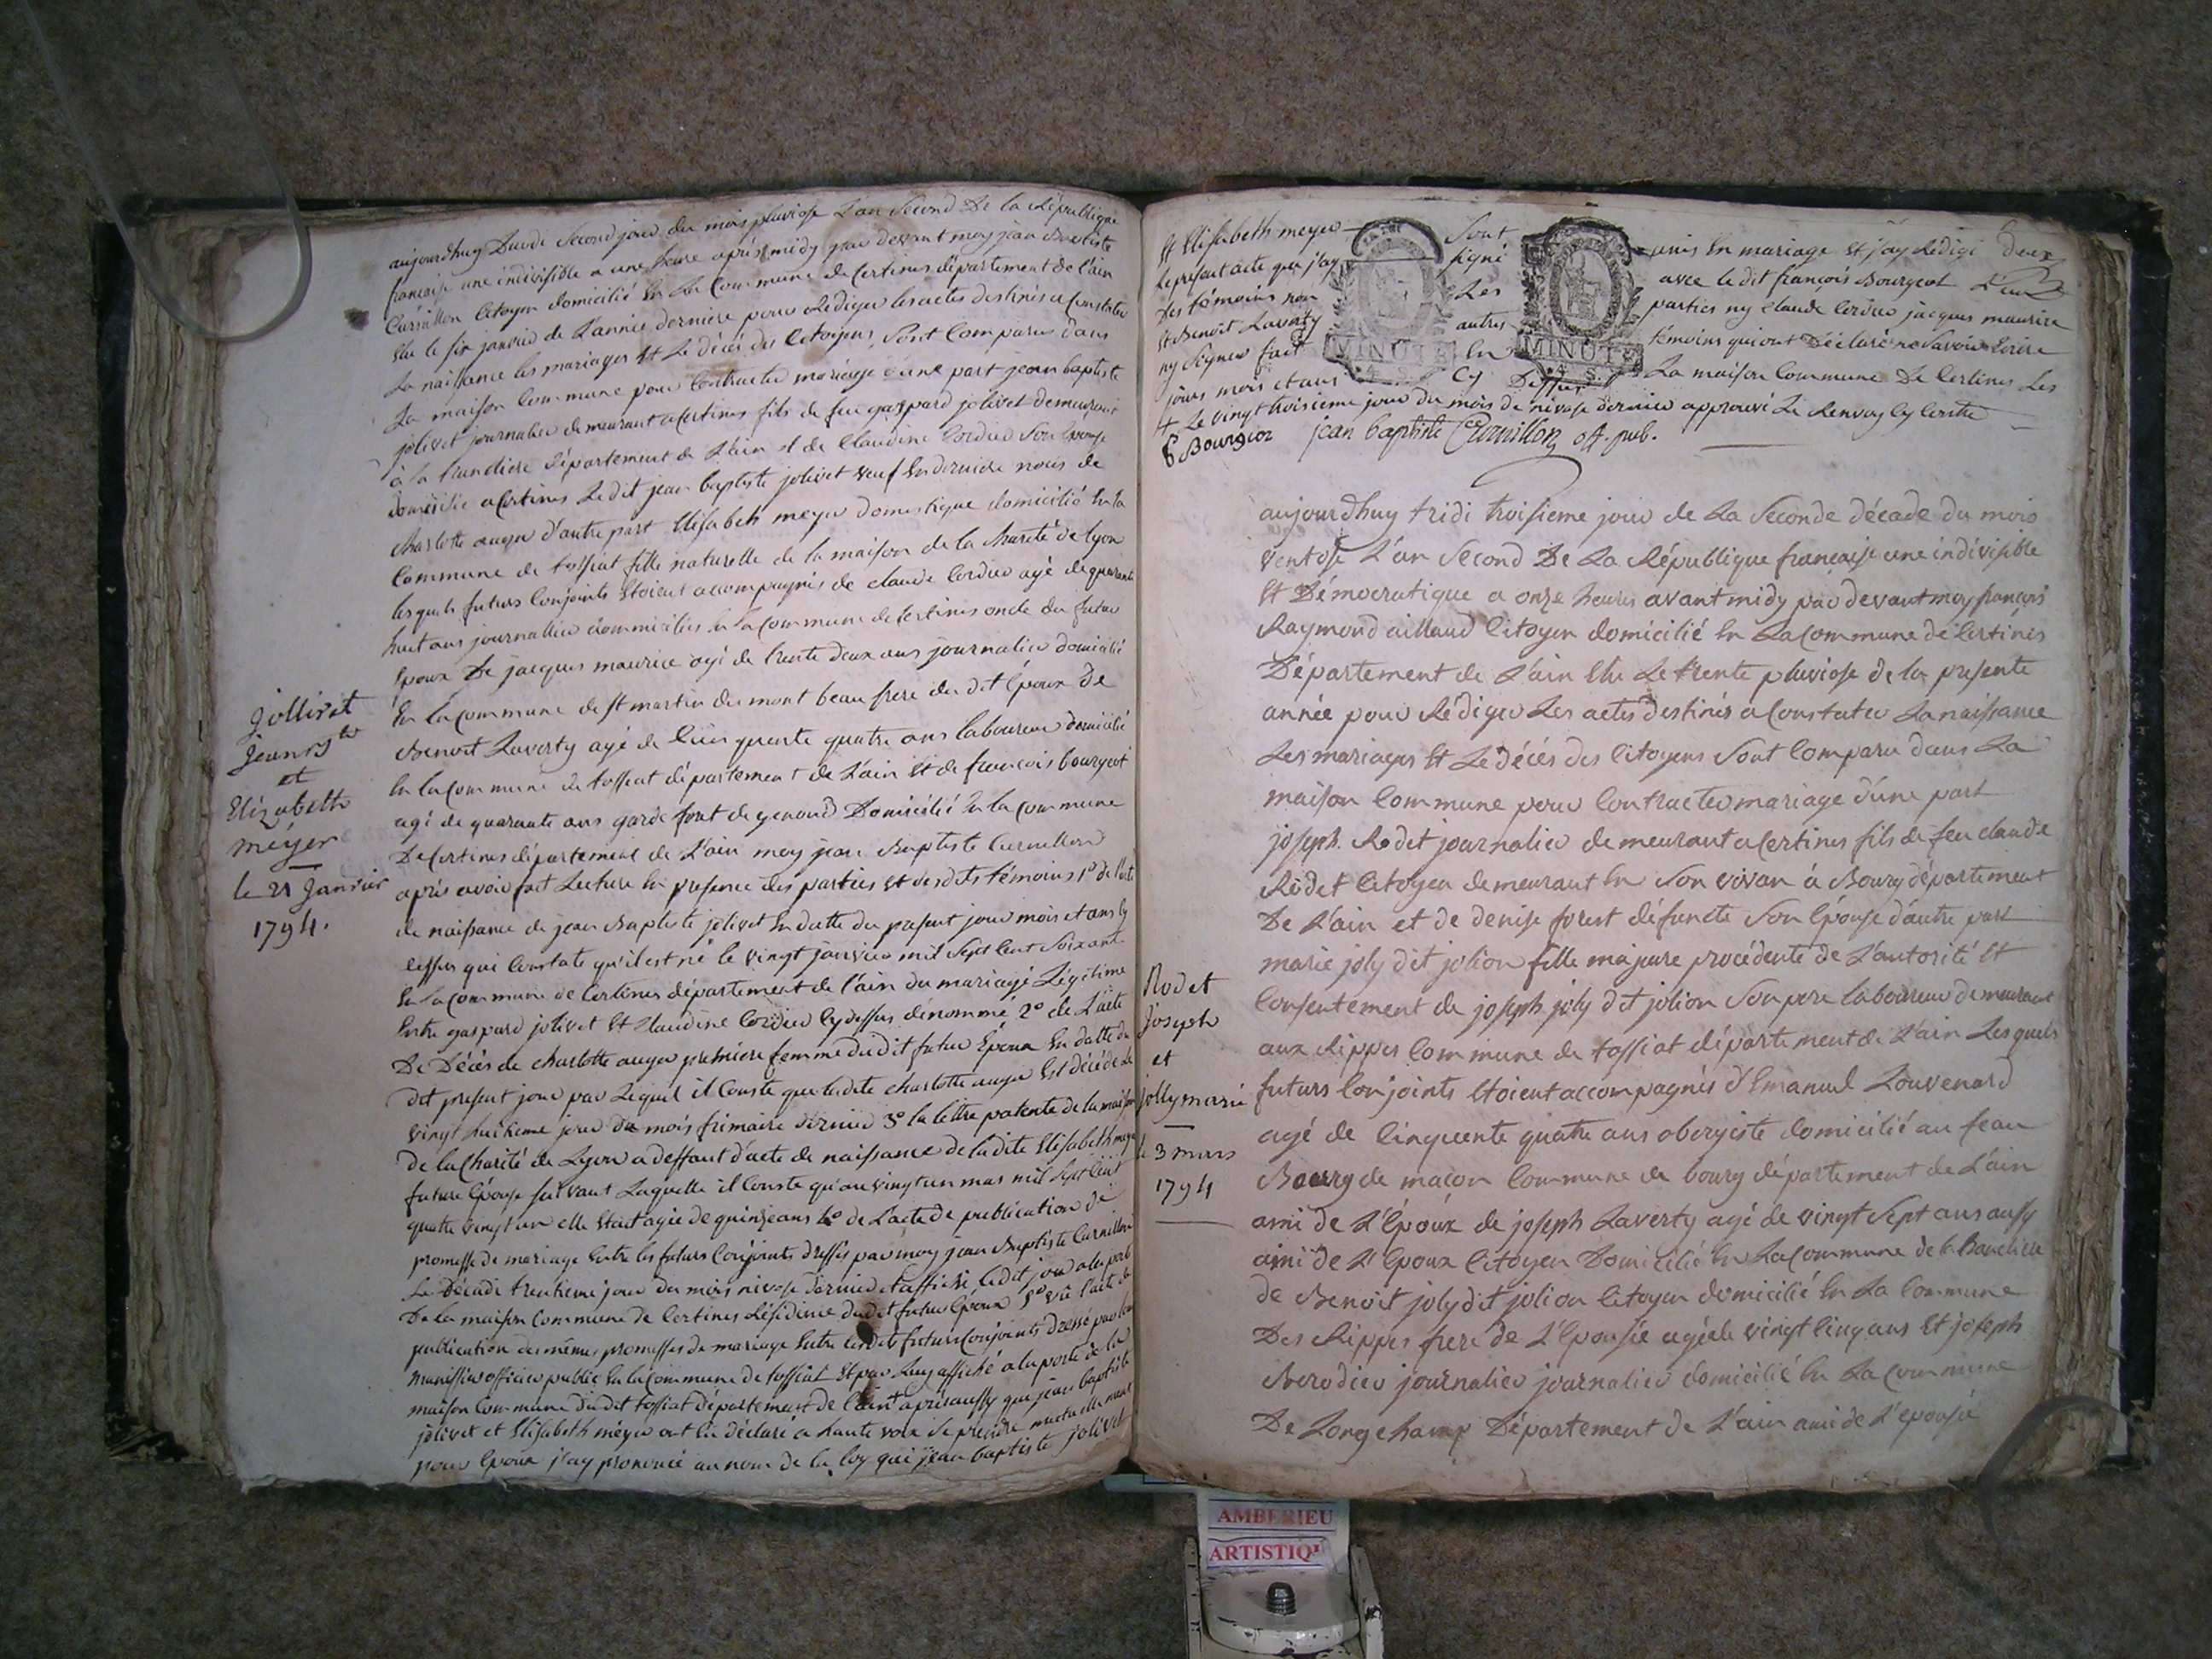 aujourdhuy Duodi Second jour du mois pluviose L'an Second De la République
francaise une indivisible a une heure après midy par devant moy jean Baptiste
Curnillon Citoyen domicilié En La Commune de Certines département de l'ain
Elu le six janvier de L'année derniere pour Rediger les actes destinés a Constater
La naissance les mariages Et Le décès des Citoyens, Sont Comparus dans
La maison Commune pour Contracter mariage d'une part jean baptiste
jolivet journalier demeurant a Certines fils de feu gaspard jolivet demeurant
à la trancliere département de L'ain et de Claudine Cordier Son Epouse
domiciliée a Certines Ledit jean baptiste jolivet veuf En derniere noces de
charlotte auger d'autre part Elisabeth meyer domestique domicilié En la
Commune de tossiat fille naturelle de la maison de la charité de lyon
lesquels futurs Conjoints Etoient accompagnés de claude Cordier agé de quarante
huit ans journallier dommicilié En la Commune de Certines oncle du futur
Epoux De jacques maurice agé de trente deux ans journalier domicilié
En la Commune de st martin du mont beau frere du dit Epoux De
Benoit Laverty agé de Cinquante quatre ans laboureur domicilié
En la Commune de tossiat département de L'ain Et de francois bourgeot
agé de quarante ans garde de genoud Domicilié En la Commune
De Certines département de L'ain moy jean Baptiste Curnillon
après avoir fait Lecture En presence des parties Et desdits témoins 1° de l'acte
de naissance de jean Baptiste jolivet En datte du present jour mois et ans Cy
dessus qui Constate qu'il est né le vingt janvier mil Sept Cent Soixante
En la Commune de Certines département de l'ain du mariage Légitime
Entre gaspard jolivet Et Claudine Cordier Cy dessus dénommé 2° de L'acte
De Décès de charlotte auger premiere femme dudit futur Epoux En datte du
dit present jour par Lequel il Conste que ladite charlotte auger Est décédée Le
vingt huitieme jour du mois frimaire dernier 3° la lettre patente de la maison
De la Charité de Lyon a deffaut d'acte de naissance de ladite Elisabeth meyer
future Epouse suivant Laquelle il Conste qu'au vingt un mas mil Sept Cent
quatre vingt un elle Etait agée de quinze ans 4° de L'acte de publication de
promesse de mariage Entre les futurs Conjoints dressés par moy jean Baptiste Curnillon
Le Décadi trentieme jour du mois nivose dernier et affiché ledit jour a la porte
De la maison Commune de Certines Résidence dudit futur Epoux 5° vû l'acte de
publication des mêmes promesses de mariage Entre lesdits futurs Conjoints dressé par
officier public En la Commune de tossiat Et par Luy affiché a la porte de la
maison Commune dudit tossiat département de l'ain après aussy que jean baptiste
jolivet et Elisabeth méyer ont Eu déclaré a haute voix Se prendre mutuellement
pour Epoux j'ay prononcé au nom de la loy que jean baptiste jolivet
jollivet
jean Bte
et
Elizabetth
méyer
le 21 Janvier
1794.
Et Elisabeth meyer Sont unis En mariage Et j'ay Redigé
Le present acte que j'ay Signé avec le dit francois Bourgeot L'un
Des témoins non Les parties ny claude Cordier jacques maurice
Et Benoit Laverty autres témoins qui ont Déclaré ne Savoir Ecrire
ny Signer fait En La maison Commune De Certines Les
jours mois et ans Cy Dessus
MINUTE
4 S.
MINUTE
4 S.
Deux
+ Le vingt troisieme jour du mois de nivose dernier approuvé Le Renvoy Cy Contre
f Bourgiot jean baptiste Curnillon off. pub.
aujourdhuy tridi troisieme jour de La Seconde décade du mois
ventose L'an Second De La République française une indivisible
Et Démocratique a onze heures avant midy par devant moy françois
Raymond aillaud Citoyen domicilié En La Commune de Certines
Département de L'ain Elu Le trente pluviose de la presente
année pour Rédiger Les actes destinés a Constater La naissance
Les mariages Et Le décès des Citoyens Sont Comparu dans La
maison Commune pour Contracter mariage d'une part
joseph Rodet journalier demeurant a Certines fils de feu claude
Rodet Citoyen demeurant En Son vivan à Bourg département
De L'ain et de denise forest défuncte Son Epouse d'autre part
marie joly dit jolion fille majeure procédente de L'autorité Et
Consentement de joseph joly dit jolion Son pere laboureur demeurant
aux Rippes Commune de tossiat département de L'ain Lesquels
futurs Conjoints Etoient accompagnés d'Emanuel Louvenard
agé de Cinquente quatre ans obergiste domicilié au feau
Bourg de maçon Commune de bourg département de L'ain
ami de L'Epoux de joseph Laverty agé de vingt Sept ans aussy
ami de L'Epoux Citoyen Domicilié En La Commune de la tranclière
de Benoit joly dit jolion Citoyen domicilié En La Commune
Des Rippes frere de L'Epousée agé de vingt Cinq ans Et joseph
journalier journalier domicilié En La Commune
De Longchamp Département de L'ain ami de L'epousée
Rodet
joseph
et
jolly marie
le 3 mars
1794
AMBERIEU
ARTISTIQU